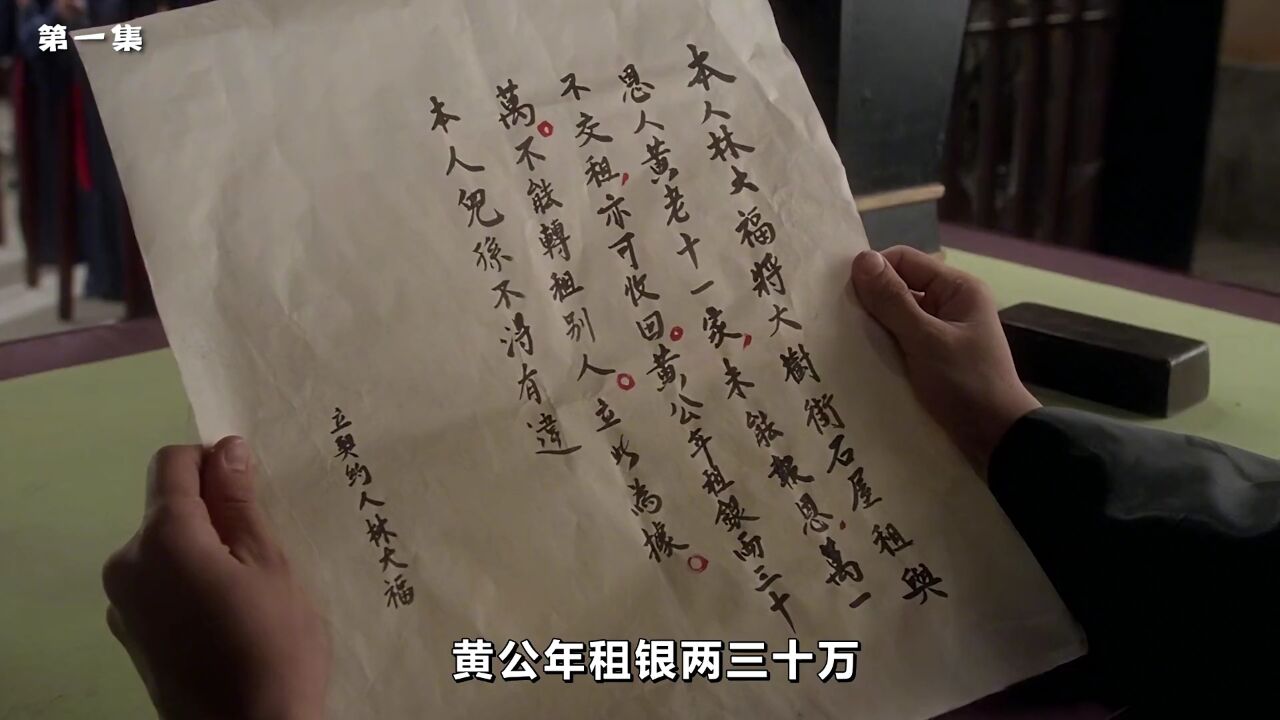 第一集
本人林大福將大樹街石屋租與
恩人黃老十一家，未能報恩，萬一
不交租，亦可收回。黃公年租銀兩三十
萬。不能轉租别人。立此為據。
本人兒孫不得有違
立契約人林大福
黄公年租银两三十万